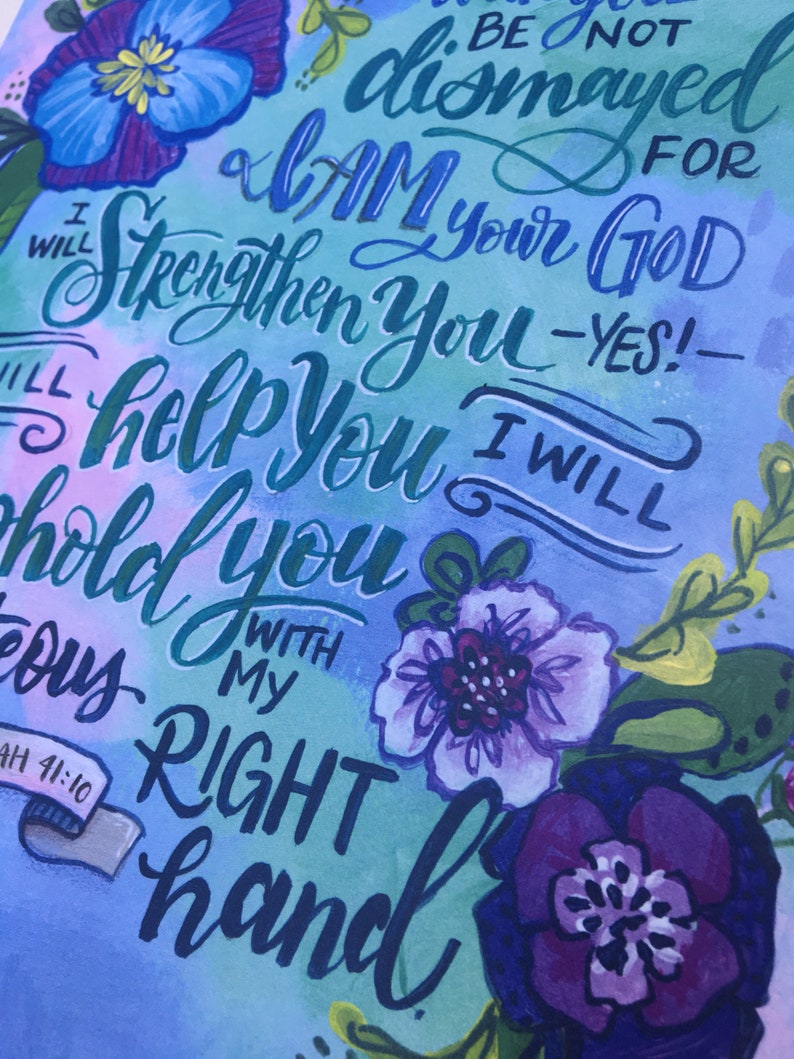 BE NOT
dismayed
FOR
I AM your GOD
I WILL Strengthen You
-YES!-
help You I WILL
hold you
WITH MY
RIGHT
hand
41:10